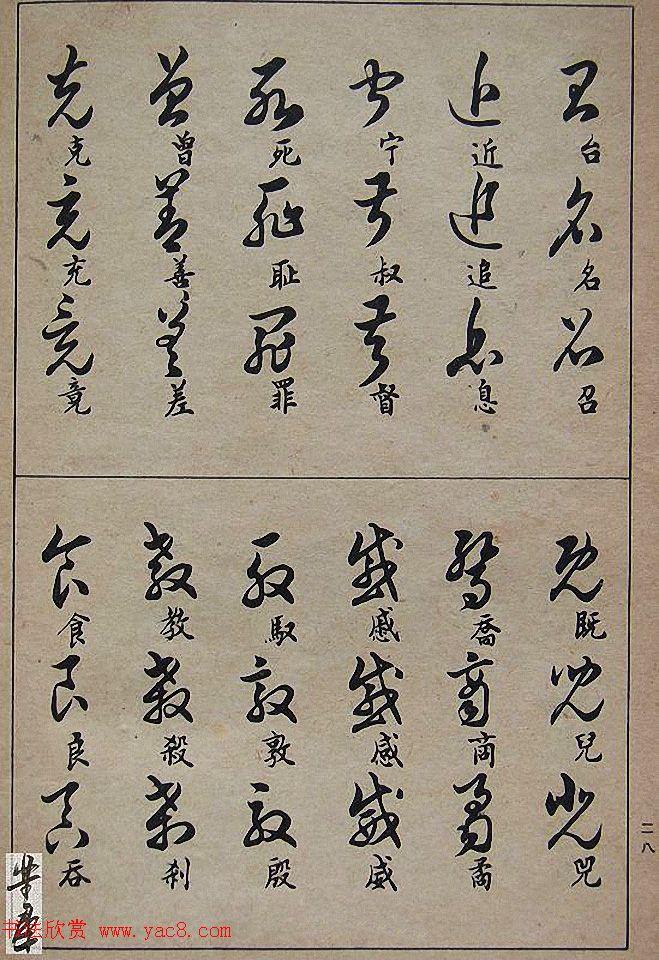 台名召
近追息
宁叔督
死耻罪
曾善差
克充竟
既兒兕
喬商矞
戚感威
馭敦殷
教殺刹
食良吞
二八
书法欣赏 www.yac8.com